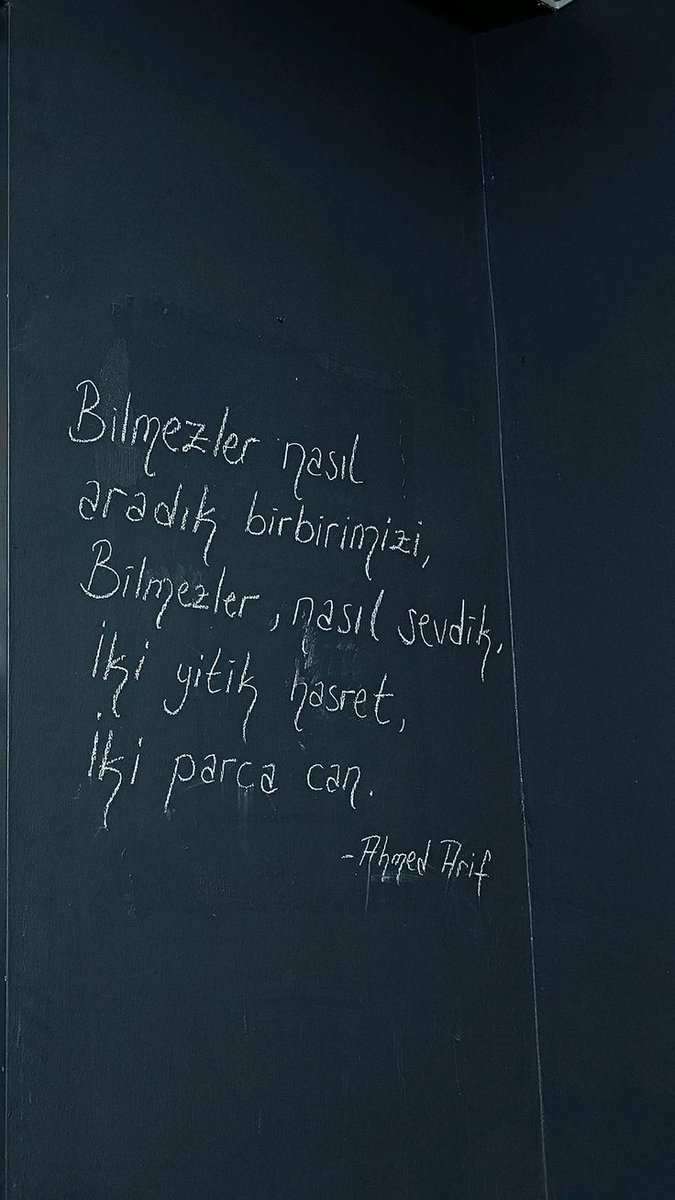 Bilmezler nasıl
aradık birbirimizi,
Bilmezler, nasıl sevdik,
İki yitik hasret,
İki parça can.
-Ahmed Arif